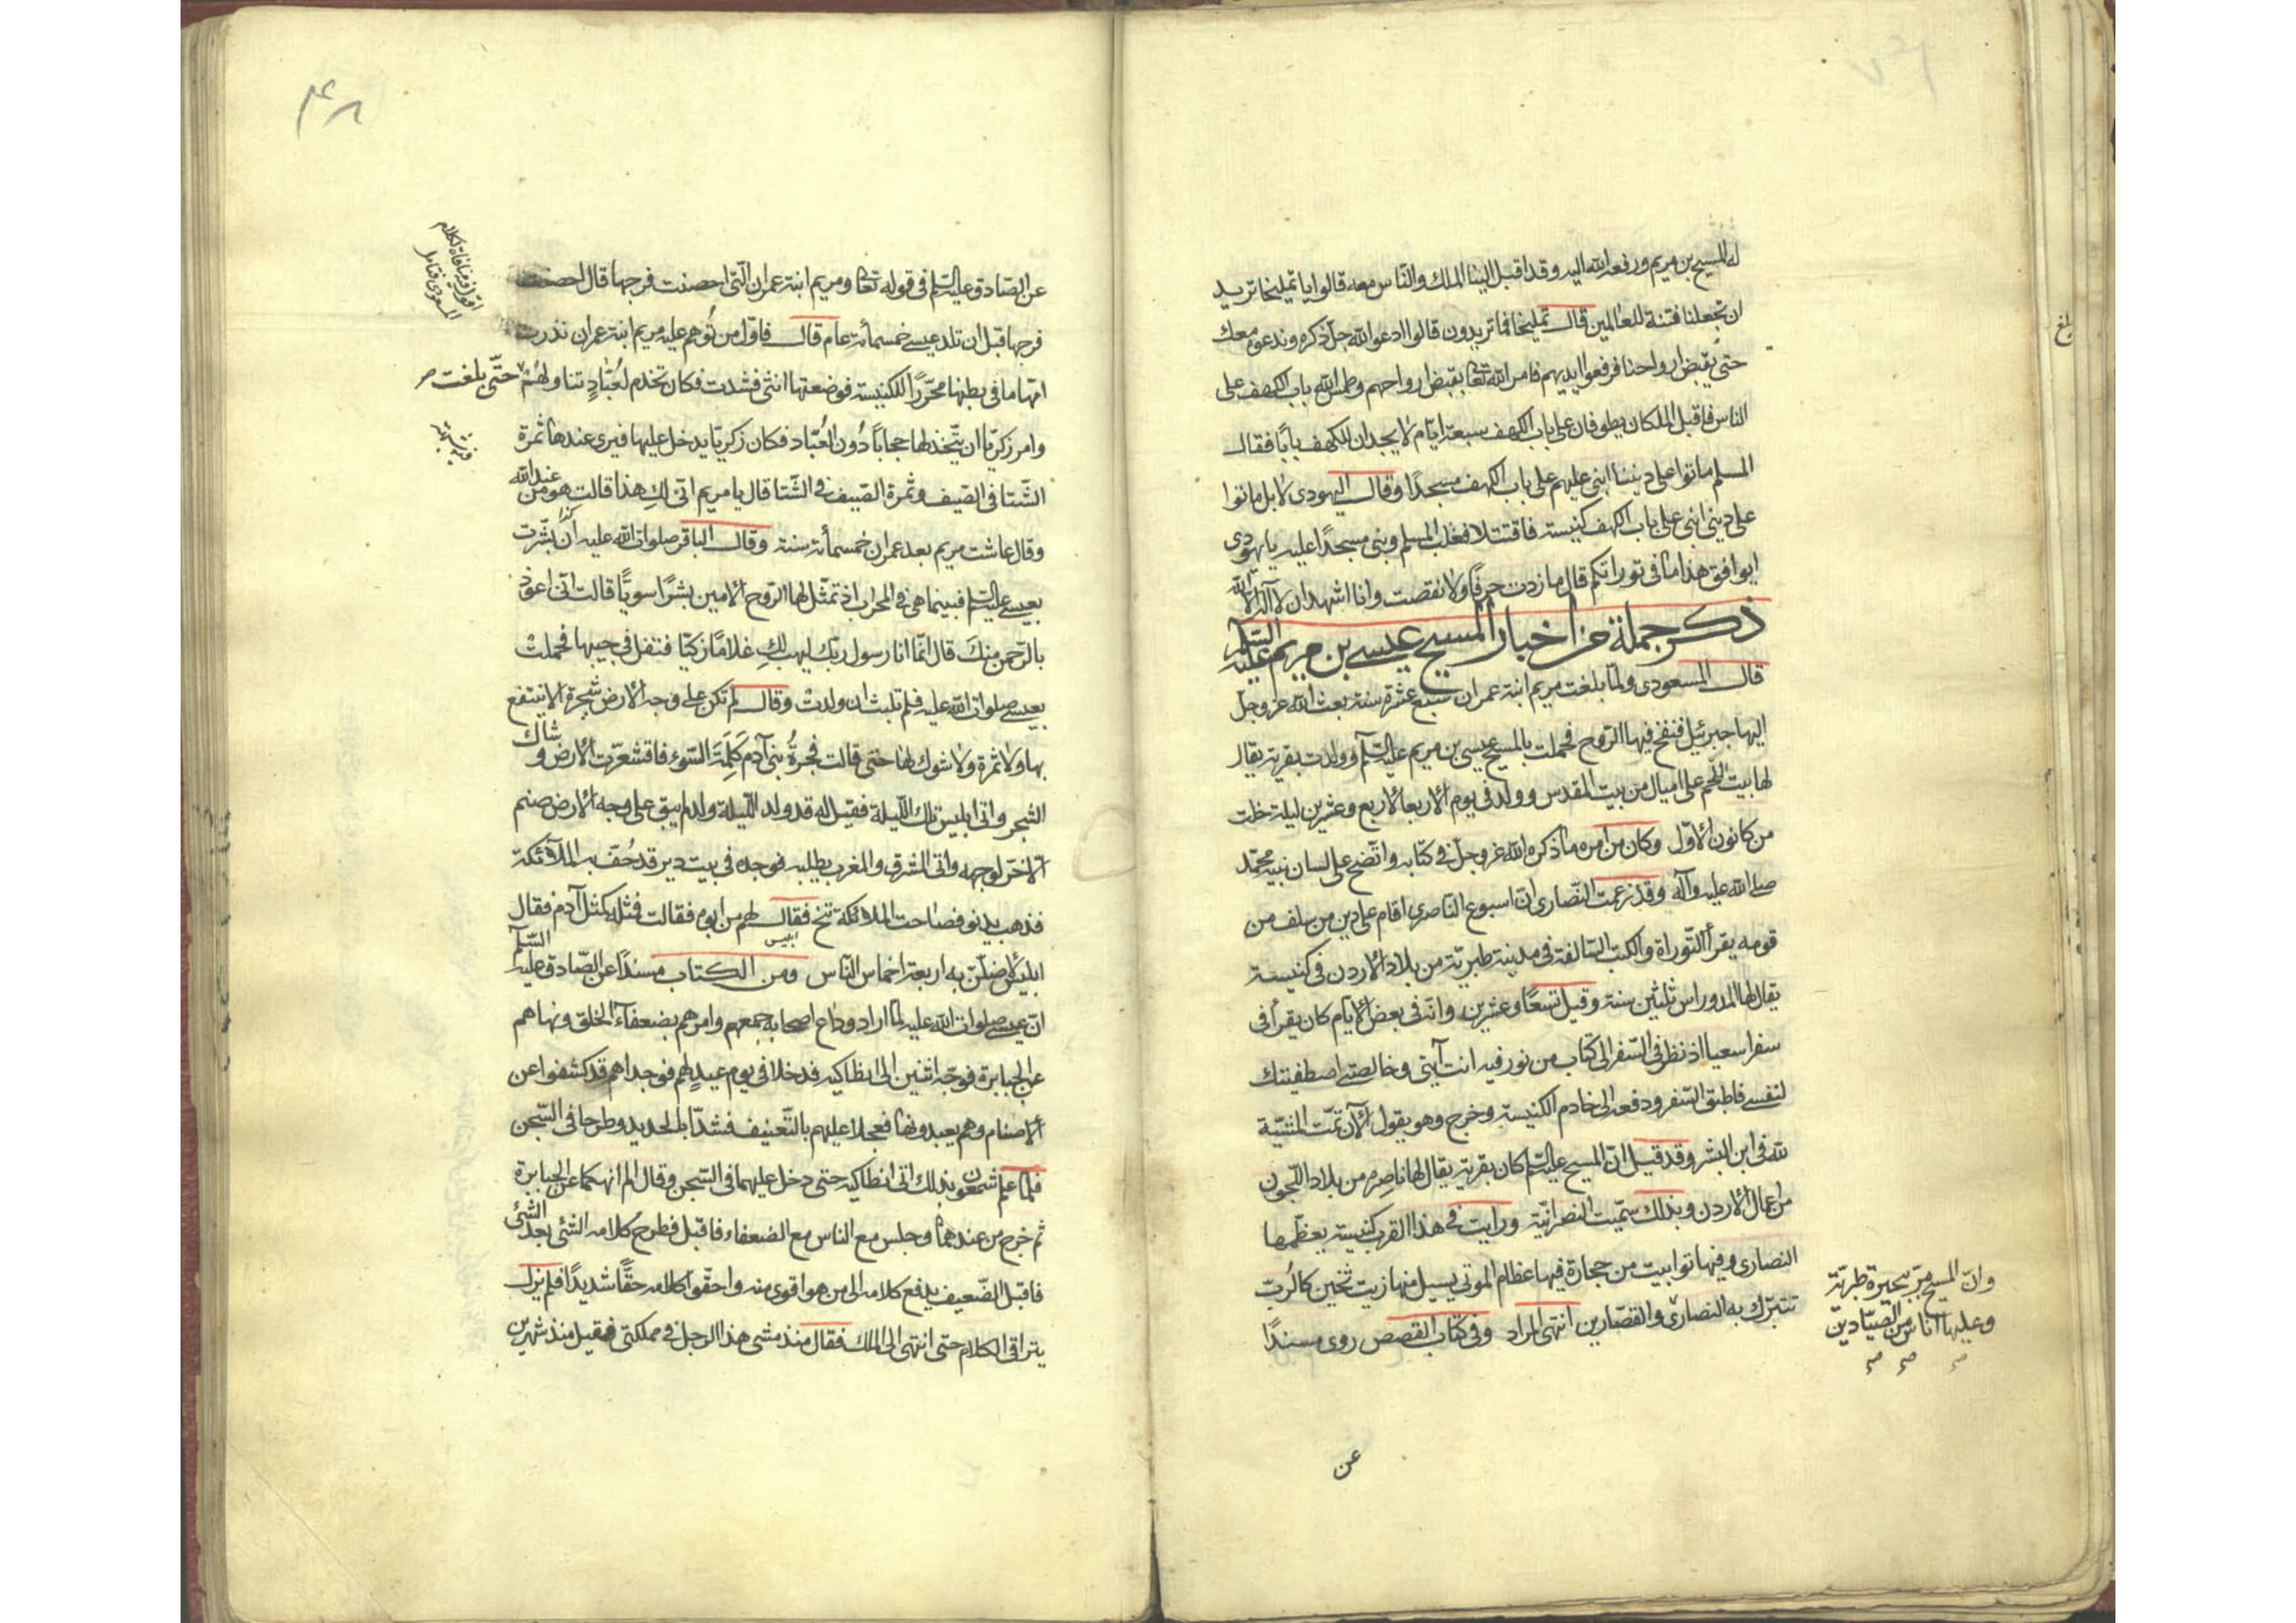 له المسيح بن مريم ورفعه الله اليه وقد اقبل الينا الملك والناس معه قالوا يا تمليخا تريد
ان تجعلنا فتنة للعالمين قال تمليخا فما تريدون قالوا ادعوا الله جل ذكره وندعو معك
حتى يقبض ارواحنا فرفعوا ايديهم فامر الله تعا بقبض ارواحهم وطمس الله باب الكهف على
الناس فاقبل الملكان يطوفان على باب الكهف سبعة ايام لا يجدان للكهف بابا فقال
المسلم ماتوا على ديننا ابني عليهم على باب الكهف مسجدا وقال اليهودي لا بل ماتوا
على ديني ابني على باب الكهف كنيسة فاقتتلا فغلب المسلم وبنى مسجدا عليه يا يهودي
ايوافق هذا ما في توراتكم قال ما زدت حرفا ولا نقصت وانا اشهد ان لا اله الا الله
ذكر جملة من اخبار المسيح عيسى بن مريم عليه السلم
قال المسعودي ولما بلغت مريم ابنة عمران سبع عشرة سنة بعث الله عز وجل
اليها جبرئيل فنفخ فيها الروح فحملت بالمسيح عيسى بن مريم عليه السلم وولدت بقرية يقال
لها بيت اللحم على اميال من بيت المقدس وولد في يوم الاربعا لاربع وعشرين ليلة خلت
من كانون الاول وكان من امره ما ذكره الله عز وجل في كتابه واتضح على لسان نبيه محمد
صلى الله عليه وآله وقد زعمت النصارى ان اسيوع الناصري اقام على دين من سلف من
قومه يقرأ التوراة والكتب السالفة في مدينة طبرية من بلاد الاردن في كنيسة
يقال لها المدوراس ثلثين سنة وقيل تسعا وعشرين وانه في بعض الايام كان يقرأ في
سفر اسعيا اذ نظر في السفر الى كتاب من نور فيه انت آيتي وخالصتي اصطفيتك
لنفسي فاطبق السفر ودفعه الى خادم الكنيسة وخرج وهو يقول الآن تمت المشية
لله في ابن البشر وقد قيل ان المسيح عليه السلم كان بقرية يقال لها ناصره من بلاد اللجون
من اعمال الاردن وبذلك سميت النصرانية ورايت في هذا القرية كنيسة يعظمها
النصارى وفيها توابيت من حجارة فيها عظام الموتى يسيل منها زيت ثخين كالرب
تتبرك به النصارى والقصارين انتهى المراد وفي كتاب القصص روى مسندا
وان المسيح مر ببحيرة طبرية
وعليها اناس من الصيادين
صح صح صح
عن
بلغ
عن الصادق عليه السلم في قوله تعا ومريم ابنة عمران التي احصنت فرجها قال احصنت
فرجها قبل ان تلد عيسى خمسمأة عام قال فاول من توهم عليه مريم ابنة عمران نذرت
امها ما في بطنها محررا للكنيسة فوضعتها انثى فشدت فكان تخدم لعباد تناولهم حتى بلغت
وامر زكريا ان يتخذ لها حجابا دون العباد فكان زكريا يدخل عليها فيرى عندها ثمرة
الشتا في الصيف وثمرة الصيف في الشتا قال يا مريم انى لك هذا قالت هو من عند الله
وقال عاشت مريم بعد عمران خمسمأة سنة وقال الباقر صلوات الله عليه ان بشرت
بعيسى عليه السلم فبينما هي في المحراب اذ تمثل لها الروح الامين بشرا سويا قالت اني اعوذ
بالرحمن منك قال انما انا رسول ربك ليهب لك غلاما زكيا فتفل في جيبها فحملت
بعيسى صلوات الله عليه فلم تلبث ان ولدت وقال لم تكن على وجه الارض شجرة الا ينتفع
بها ولا ثمرة ولا شوك لها حتى قالت فجرة بني آدم كلمة السوء فاقشعرت الارض وشاك
الشجر واتى ابليس تلك الليلة فقيل له قد ولد الليلة ولد لم يبق على وجه الارض صنم
الا خر لوجهه واتى المشرق والمغرب يطلبه فوجده في بيت دير قد حفت به الملائكة
فذهب يدنو فصاحت الملائكة تنح فقال لهم من ابوه فقالت فمثله كمثل آدم فقال
ابليس لاضلن به اربعة اخماس الناس ومن الكتاب مسندا عن الصادق عليه السلم
ان عيسى صلوات الله عليه لما اراد وداع اصحابه جمعهم وامرهم بضعفاء الخلق ونهاهم
عن الجبابرة فوجه اثنين الى انطاكيه فدخلا في يوم عيد لهم فوجداهم قد كشفوا عن
الاصنام وهم يعبدونها فعجلا عليهم بالتعنيف فشدا بالحديد وطرحا في السجن
فلما علم شمعون بذلك اتى انطاكيه حتى دخل عليهما في السجن وقال الم انهكما عن الجبابرة
ثم خرج من عندهما وجلس مع الناس مع الضعفاء فاقبل فطرح كلامه الشئ بعد الشئ
فاقبل الضعيف يدفع كلامه الى من هو اقوى منه واحقوا كلامه حقا شديدا فلم يزل
يتراقى الكلام حتى انتهى الى الملك فقال منذ متى هذا الرجل في مملكتي فقيل منذ شهرين